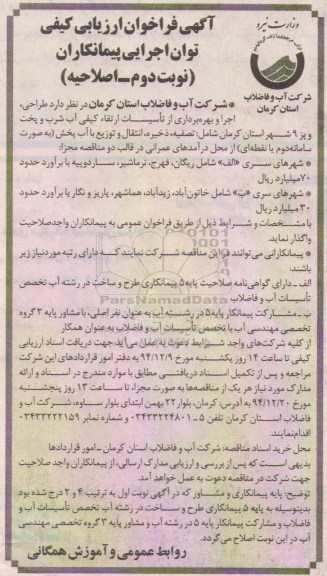 آگهی فراخوان ارزیابی کیفی
توان اجرایی پیمانکاران
(نوبت دوم ـ اصلاحیه)
وزارت نیرو
شرکت آب و فاضلاب
استان کرمان
* شرکت آب و فاضلاب استان کرمان در نظر دارد طراحی،
اجرا و بهره‌برداری از تأسیسات ارتقاء کیفی آب شرب و پخت
و پز ۹ شهر استان کرمان شامل: تصفیه، ذخیره، انتقال و توزیع با آب پخش (به‌صورت
سامانه دوم یا نقطه‌ای) از محل درآمدهای عمرانی در قالب دو مناقصه مجزا:
* شهرهای سری «الف» شامل ریگان، فهرج، نرماشیر، ساردوییه با برآورد حدود
۷۰ میلیارد ریال
* شهرهای سری «ب» شامل خاتون‌آباد، زیدآباد، هماشهر، پاریز و نگار با برآورد حدود
۳۰ میلیارد ریال
با مشخصات و شرایط ذیل از طریق فراخوان عمومی به پیمانکاران واجد صلاحیت
واگذار نماید.
* پیمانکارانی می‌توانند در این مناقصه شرکت نمایند که دارای رتبه مورد نیاز زیر
باشند:
الف ـ دارای گواهی‌نامه صلاحیت پایه ۵ پیمانکاری طرح و ساخت در رشته آب تخصص
تأسیسات آب و فاضلاب
ب ـ مشارکت پیمانکار پایه ۵ در رشته آب به عنوان نفر اصلی، با مشاور پایه ۳ گروه
تخصصی مهندسی آب با تخصص تأسیسات آب و فاضلاب به عنوان همکار
از کلیه شرکت‌های واجد شرایط دعوت به عمل می‌آید جهت دریافت اسناد ارزیابی
کیفی تا ساعت ۱۴ روز یکشنبه مورخ ۹۴/۱۲/۹ به دفتر امور قراردادهای این شرکت
مراجعه و پس از تکمیل اسناد دریافتی مطابق با موارد مندرج در اسناد و ارائه
مدارک مورد نیاز هر یک از مناقصه‌ها به صورت مجزا، تا ساعت ۱۳ روز پنجشنبه
مورخ ۹۴/۱۲/۲۰ به آدرس: کرمان، بلوار ۲۲ بهمن ابتدای بلوار ساوه، شرکت آب و
فاضلاب استان کرمان تلفن ۵ ـ ۰۳۴۳۳۲۲۴۸۰۱ و شماره نمابر ۰۳۴۳۳۲۲۲۱۵۹
اقدام نمایند.
محل خرید اسناد مناقصه: شرکت آب و فاضلاب استان کرمان ـ امور قراردادها
بدیهی است که پس از بررسی و ارزیابی مدارک ارسالی، از پیمانکاران واجد صلاحیت
جهت شرکت در مناقصه دعوت به عمل خواهد آمد.
توضیح: پایه پیمانکاری و مشاور که در آگهی نوبت اول به ترتیب ۴ و ۲ درج شده بود
بدینوسیله به پایه ۵ پیمانکاری طرح و ساخت در رشته آب تخصص تأسیسات آب و
فاضلاب و مشارکت پیمانکار پایه ۵ در رشته آب و مشاور پایه ۳ گروه تخصصی مهندسی
آب در این نوبت اصلاح می‌گردد.
روابط عمومی و آموزش همگانی
ParsNamadData